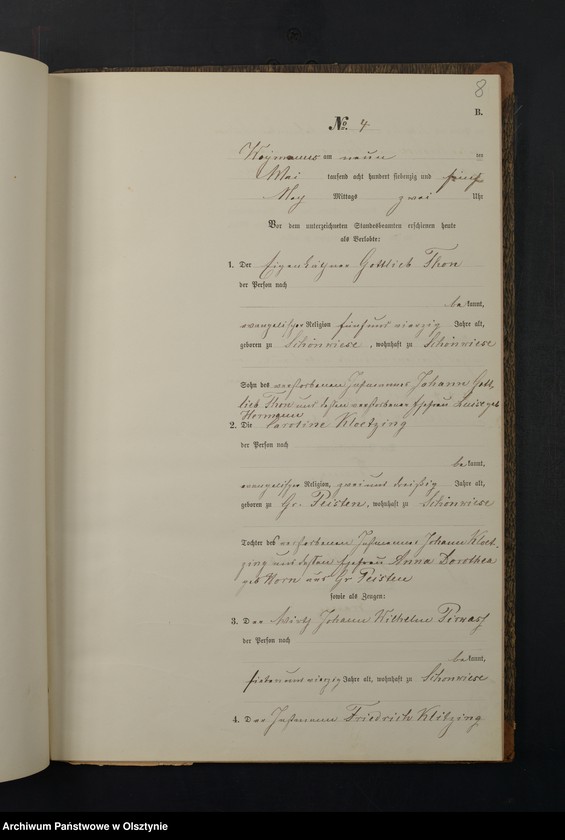 8
B.
No. 4
am neun ten
Mai tausend acht hundert siebenzig und fünf
Nach Mittags zwei Uhr
Vor dem unterzeichneten Standesbeamten erschienen heute
als Verlobte:
1. Der Eigenkäthner Gottlieb Thon
der Person nach
bekannt,
evangelischer Religion fünfundvierzig Jahre alt,
geboren zu Schönwiese, wohnhaft zu Schönwiese
Sohn des verstorbenen Instmannes Johann Gott-
lieb Thon und dessen verstorbener Ehefrau Luise geb
Hermann
2. Die Caroline Kloetzing
der Person nach
bekannt,
evangelischer Religion, zweiunddreißig Jahre alt,
geboren zu Gr. Peisten, wohnhaft zu Schönwiese
Tochter des verstorbenen Instmannes Johann Kloet-
zing und dessen Ehefrau Anna Dorothea
geb Korn aus Gr Peisten
sowie als Zeugen:
3. Der Wirth Johann Wilhelm
der Person nach
bekannt,
siebenundvierzig Jahre alt, wohnhaft zu Schönwiese
4. Der Instmann Friedrich Klitzing
Archiwum Państwowe w Olsztynie